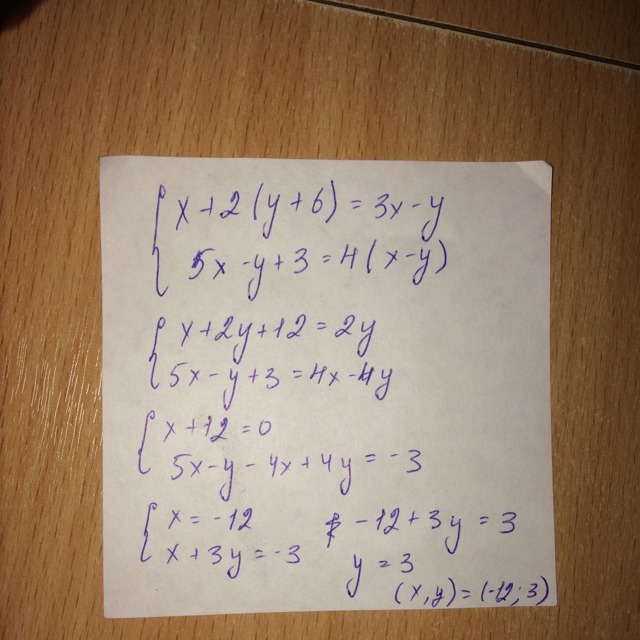 x+2(y+6)=3x-y
5x-y+3=4(x-y)
x+2y+12=2y
5x-y+3=4x-4y
x+12=0
5x-y-4x+4y=-3
x=-12
-12+3y=3
x+3y=-3
y=3
(x,y)=(-12;3)